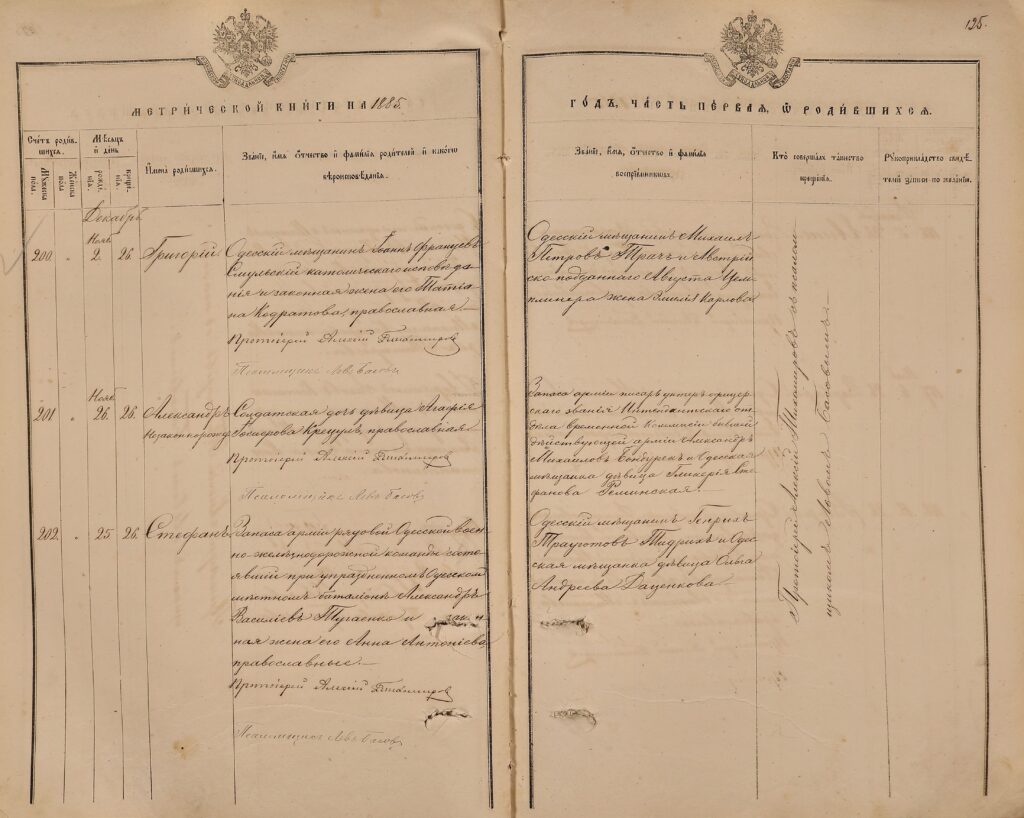 125.
МЕТРИЧЕСКОЙ КНИГИ НА 1885.
ГОДЪ, ЧАСТЬ ПЕРВАЯ, Ѿ РОДИВШИХСЯ.
Счетъ родив-
шихся.
Мужеска
пола.
Женска
пола
Мѣсяцъ
и день
рожде-
нія.
креще-
нія.
Имена родившихся.
Званіе, имя отчество и фамилія родителей и какого
вѣроисповѣданія.
Званіе, имя, отчество и фамилія
воспріемниковъ.
Кто совершалъ таинство
крещенія.
Рукоприкладство свидѣ-
телей записи по желанію.
Декабрь
200.
Нояб
2.
26.
Григорій
Одесскій мѣщанинъ Іоаннъ Францевъ
Смульскій католическаго исповѣда-
нія и законная жена его Татіа-
на Кодратова, православная.
Протоіерей Алексій
Псаломщикъ Левъ Басовъ
Одесскій мѣщанинъ Михаилъ
Петровъ Трачъ и Австрій-
ско подданнаго Августа
жена Эмилія Карлова
201.
Нояб
26.
26.
Александръ
Незаконнорожд.
Солдатская дочь дѣвица Агафія
Крецулъ, православная
Протоіерей Алексій
Псаломщикъ Левъ Басовъ
Запаса арміи писарь унтеръ офицер-
скаго званія Интендантскаго от-
дѣла временной Коммисіи бывшей
дѣйствующей арміи Александръ
Михаиловъ и Одесская
мѣщанка дѣвица Гликерія Сте-
фанова Реминская.
202.
25
26.
Стефанъ
Запаса арміи рядовой Одесской воен-
но-желѣзнодорожной команды состо-
явшій при упраздненномъ Одесскомъ
мѣстномъ баталіонѣ Александръ
Василіевъ Тугаенко и закон-
ная жена его Анна Антоніева,
православные.
Протоіерей Алексій
Псаломщикъ Левъ Басовъ
Одесскій мѣщанинъ Генрихъ
Траутотовъ Тидрихъ и Одес-
ская мѣщанка дѣвица Ольга
Андреева Даценкова.
Протоіерей Алексій съ псалом-
щикомъ Львомъ Басовымъ.